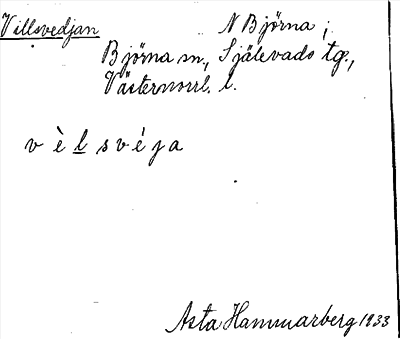 Villsvedjan N Björna i
Björna sn, Själevads tg.,
Västernorrl. l.
v è l s v é j a
Asta Hammarberg 1933